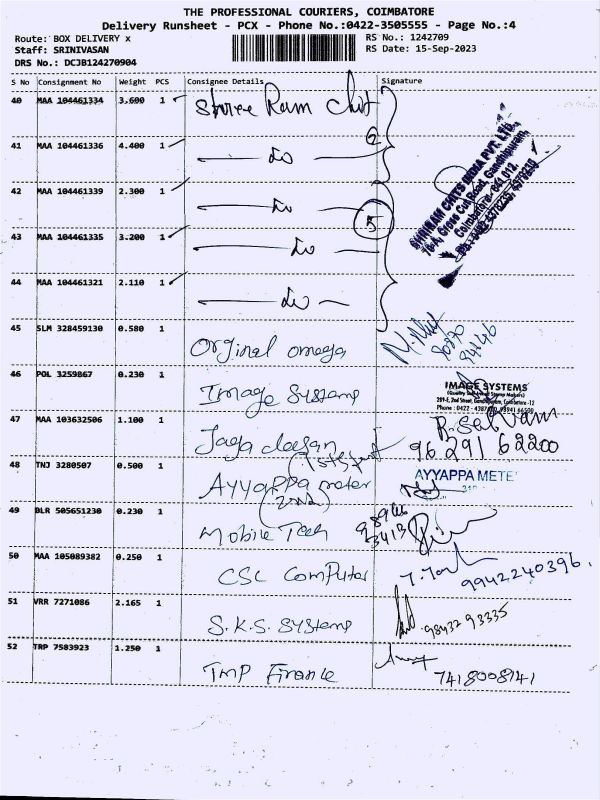 THE PROFESSIONAL COURIERS, COIMBATORE
Delivery Runsheet - PCX - Phone No.:0422-3505555 - Page No.:4
Route: BOX DELIVERY x
RS No.: 1242709
Staff: SRINIVASAN
RS Date: 15-Sep-2023
DRS No.: DCJB124270904
S No Consignment No Weight PCS Consignee Details Signature
40 MAA 104461334 3.600 1 Shree Ram Chit
41 MAA 104461336 4.400 1 do
42 MAA 104461339 2.300 1 do
43 MAA 104461335 3.200 1 do
44 MAA 104461321 2.110 1 do
5
SHRIRAM CHITS INDIA PVT. LTD.,
Cross Cut Road, Gandhipuram,
Coimbatore-641 012.
45 SLM 328459130 0.580 1 Orginal omega
46 POL 3259867 0.230 1 Image Systems
IMAGE SYSTEMS
47 MAA 103632506 1.100 1 Jaga deesan
R. Selvam
96291 62200
48 TNJ 3280507 0.500 1 Ayyappa meter
AYYAPPA METE
49 BLR 505651230 0.230 1 Mobile Tech
50 MAA 105089382 0.250 1 CSC Computer
9942240396.
51 VRR 7271086 2.165 1 S.K.S. Systems
9843293335
52 TRP 7583923 1.250 1 TMP Finance
7418008141